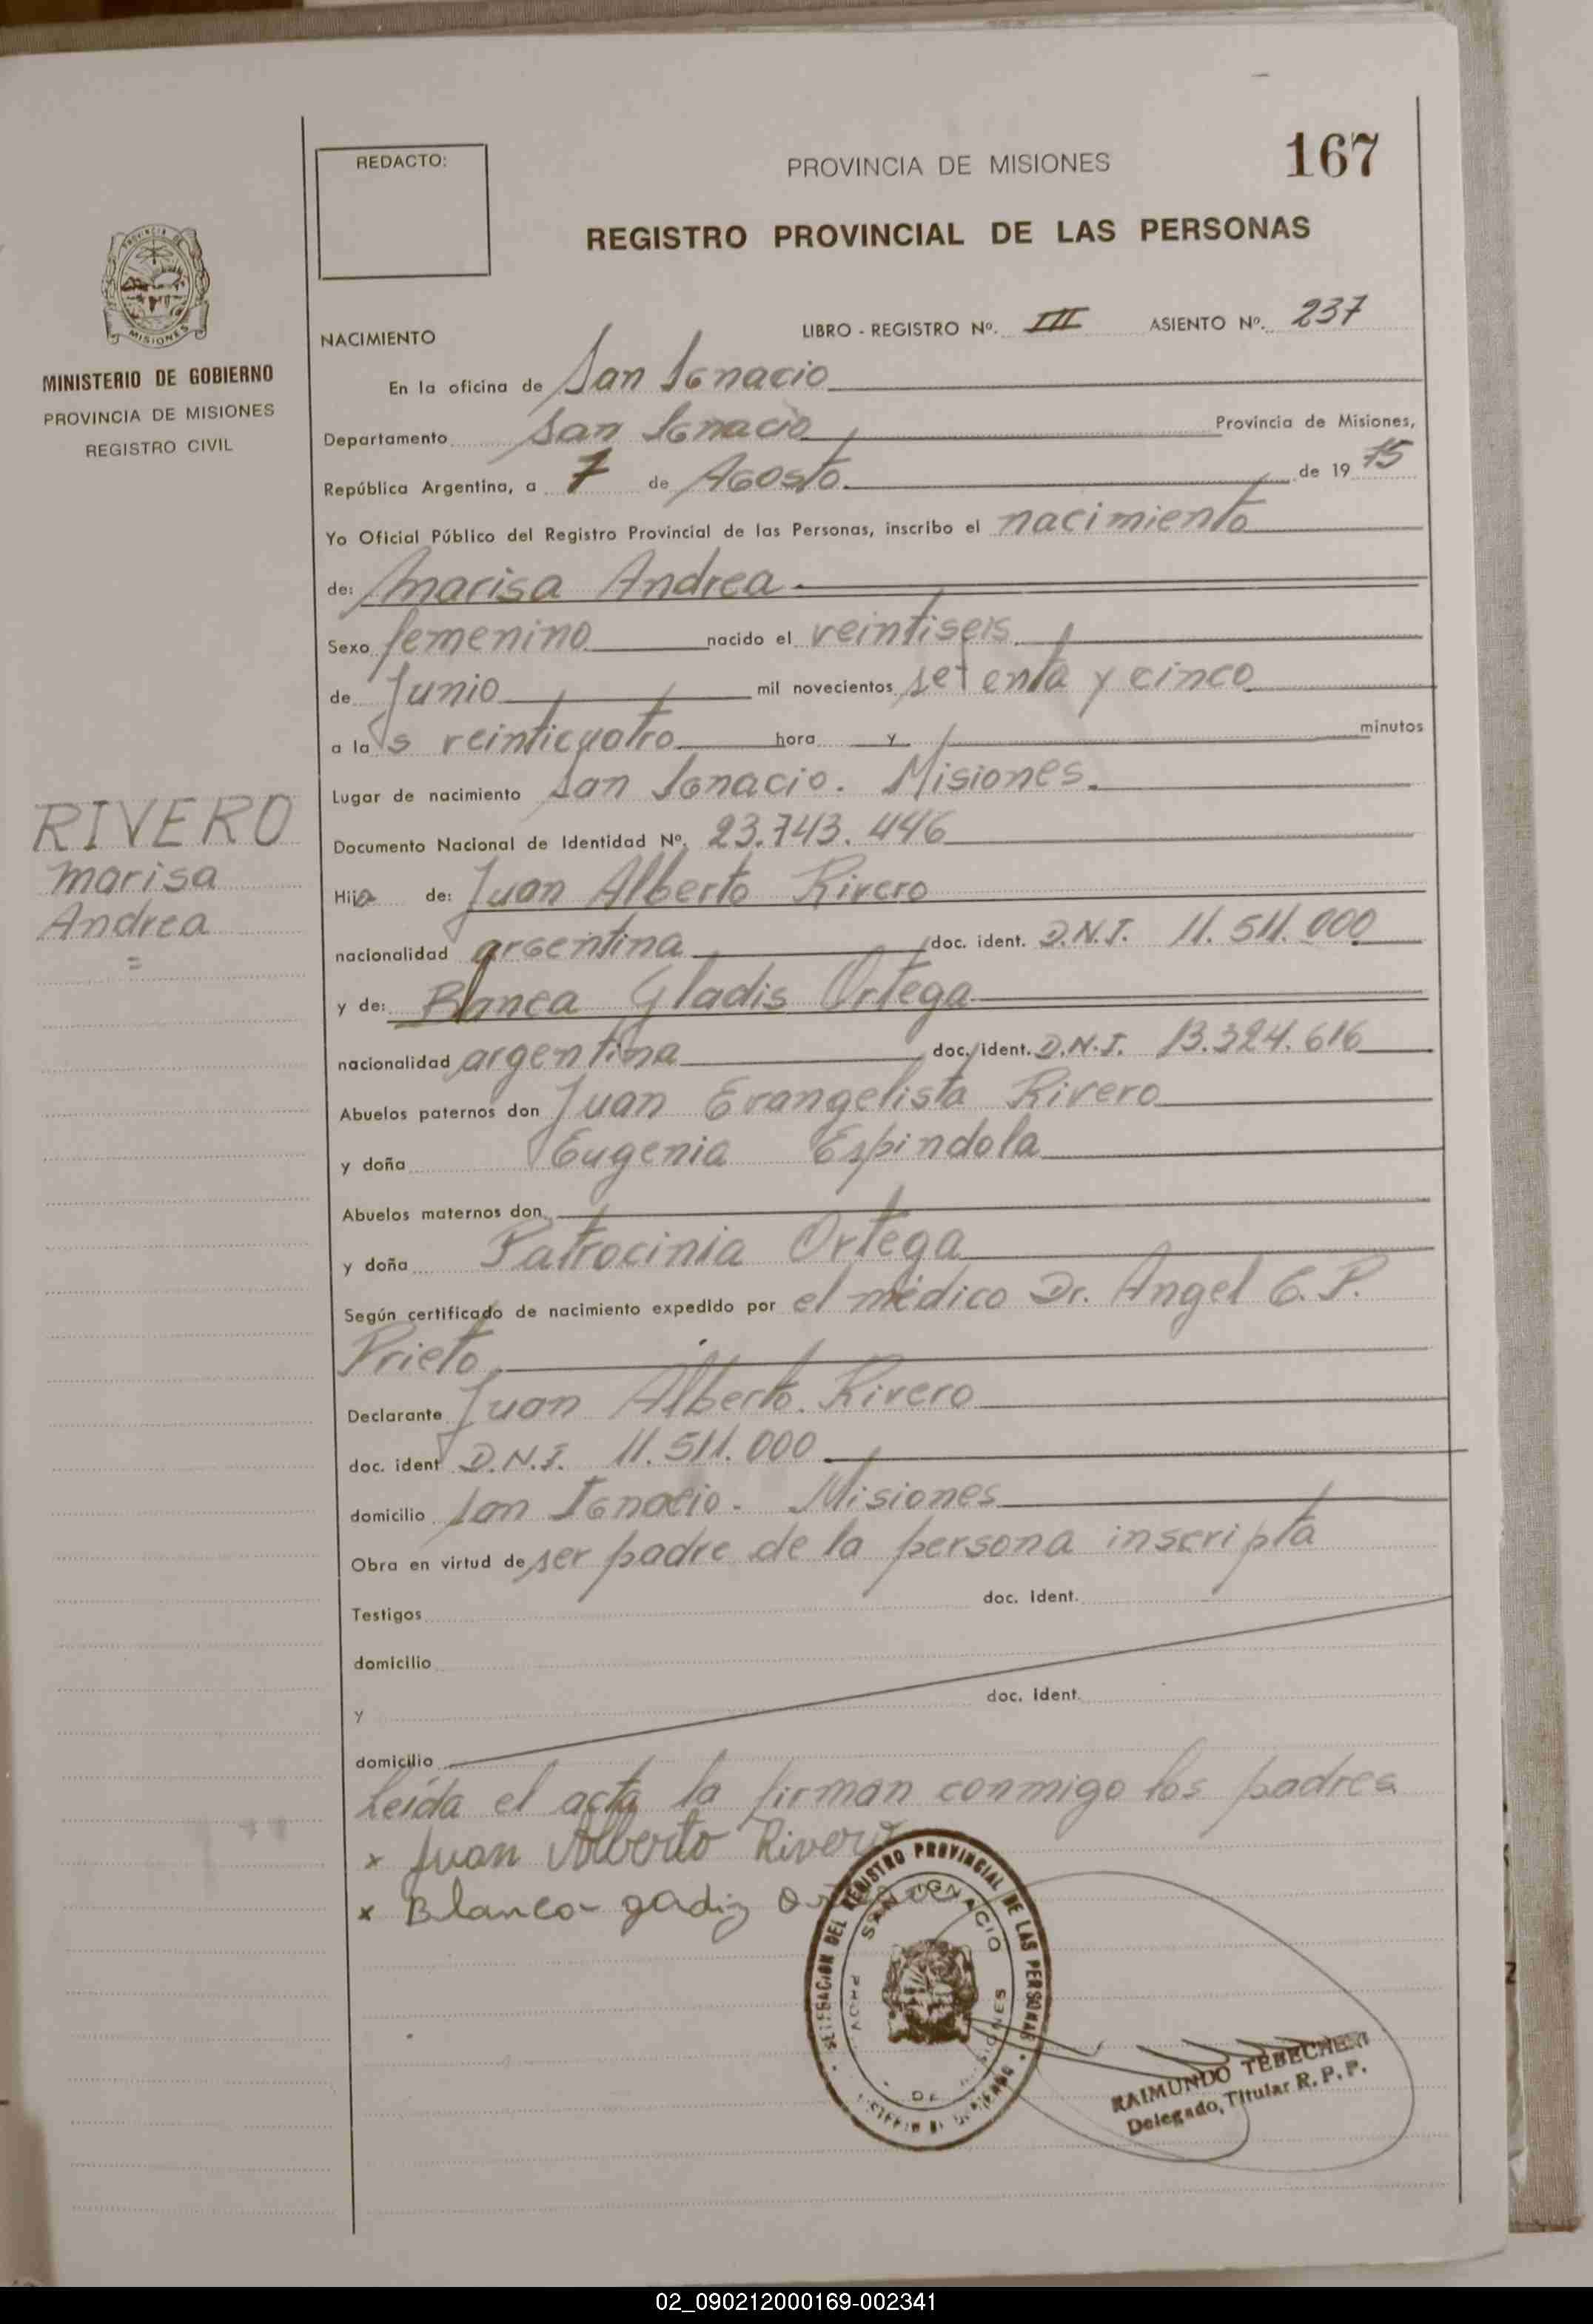 REDACTO:
PROVINCIA DE MISIONES
167
REGISTRO PROVINCIAL DE LAS PERSONAS
MINISTERIO DE GOBIERNO
PROVINCIA DE MISIONES
REGISTRO CIVIL
NACIMIENTO LIBRO - REGISTRO Nº. III ASIENTO Nº. 237
En la oficina de San Ignacio
Departamento San Ignacio Provincia de Misiones,
República Argentina, a 7 de Agosto de 19 75
Yo Oficial Público del Registro Provincial de las Personas, inscribo el nacimiento
de: Marisa Andrea
Sexo femenino nacido el veintiseis
de Junio mil novecientos setenta y cinco
a las veinticuatro hora y minutos
Lugar de nacimiento San Ignacio. Misiones.
RIVERO
Marisa
Andrea
Documento Nacional de Identidad Nº. 23.743.446
Hija de: Juan Alberto Rivero
nacionalidad argentina doc. ident. D.N.I. 11.511.000
y de: Blanca Gladis Ortega
nacionalidad argentina doc. ident. D.N.I. 13.324.616
Abuelos paternos don Juan Evangelista Rivero
y doña Eugenia Espindola
Abuelos maternos don
y doña Patrocinia Ortega
Según certificado de nacimiento expedido por el médico Dr. Angel E. P.
Prieto
Declarante Juan Alberto Rivero
doc. ident D.N.I. 11.511.000
domicilio San Ignacio. Misiones
Obra en virtud de ser padre de la persona inscripta
Testigos doc. ident.
domicilio
y doc. ident.
domicilio
Leída el acta la firman conmigo los padres
x Juan Alberto Rivero
x Blanca gadis
DELEGACION DEL REGISTRO PROVINCIAL DE LAS PERSONAS
SAN IGNACIO
PROV. DE MISIONES
RAIMUNDO TEBECHERI
Delegado, Titular R. P. P.
02_090212000169-002341